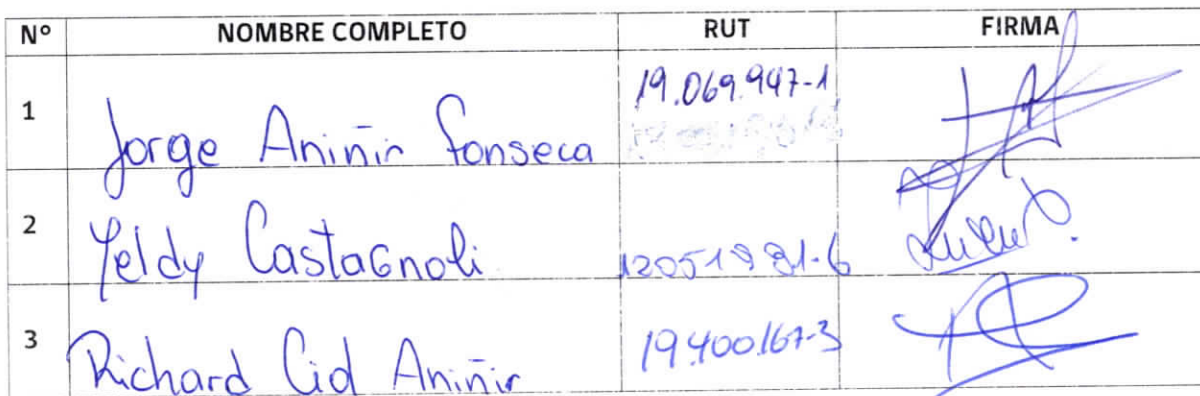 Nº NOMBRE COMPLETO RUT FIRMA
1 Jorge Aniñir Fonseca 19.069.947-1
2 Yeldy Castagnoli 12051981-6
3 Richard Cid Aniñir 19.400.167-3